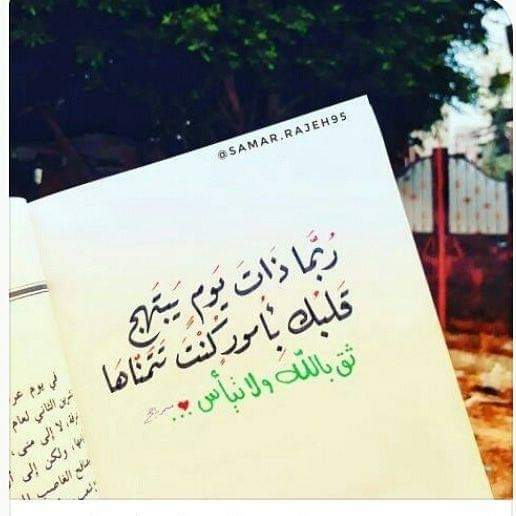 @SAMAR.RAJEH95
رُبَّمَا ذَاتَ يَوْمٍ يَبْتَهِج
قَلبُك بأمورٍ كُنْتَ تَتَمنّاهَا
ثق بالله ولا تيأس ...
في يوم
الثاني لعام
لا إلى منى،
ولكن إلى
الغاصب